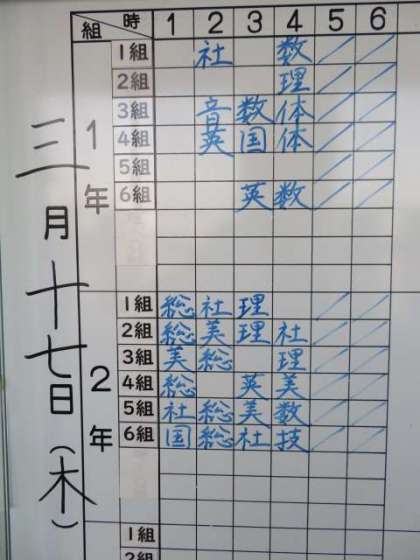 三月十七日(木)
組 時 1 2 3 4 5 6
1年
1組 社 数 / /
2組 理 / /
3組 音 数 体 / /
4組 英 国 体 / /
5組 / /
6組 英 数 / /
2年
1組 総 社 理 / /
2組 総 美 理 社 / /
3組 美 総 理 / /
4組 総 英 美 / /
5組 社 総 美 数 / /
6組 国 総 社 技 / /
1組
2組